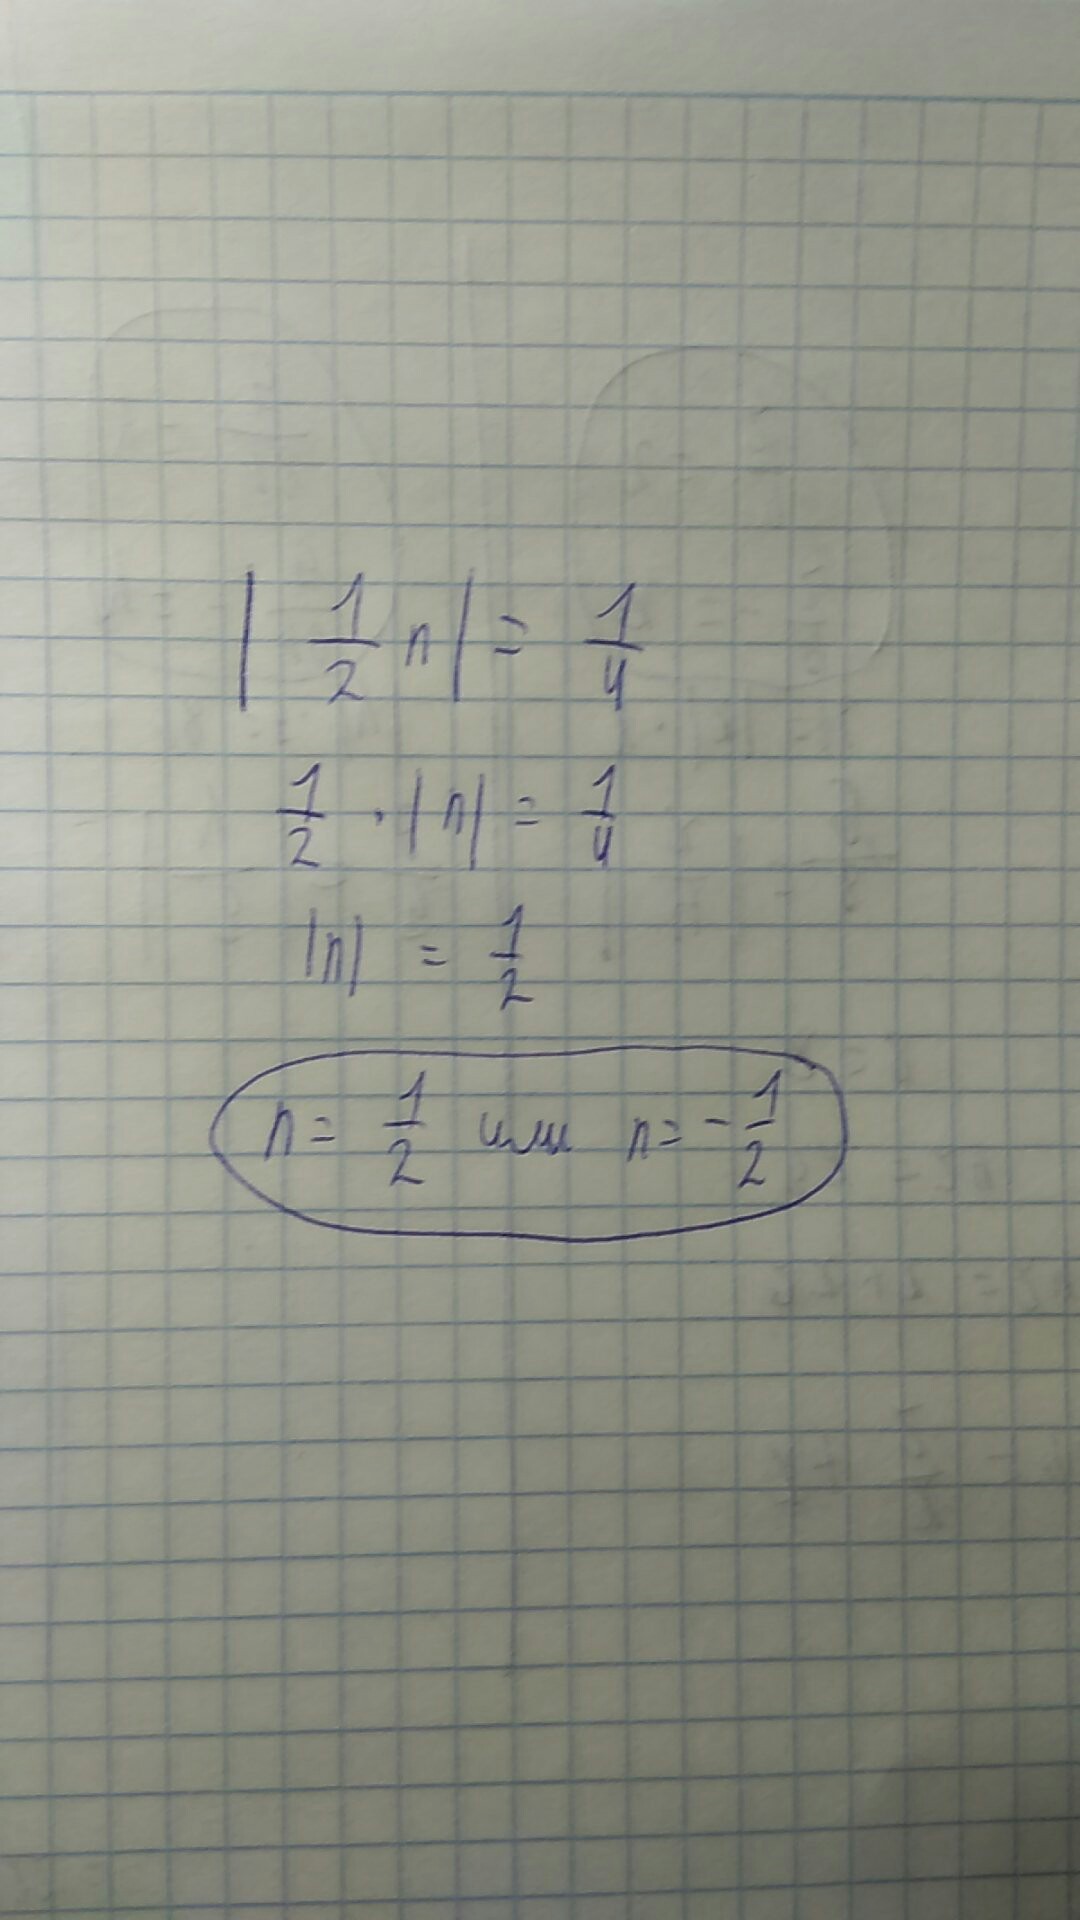 | 1/2 n | = 1/4
1/2 · |n| = 1/4
|n| = 1/2
n = 1/2 или n = - 1/2